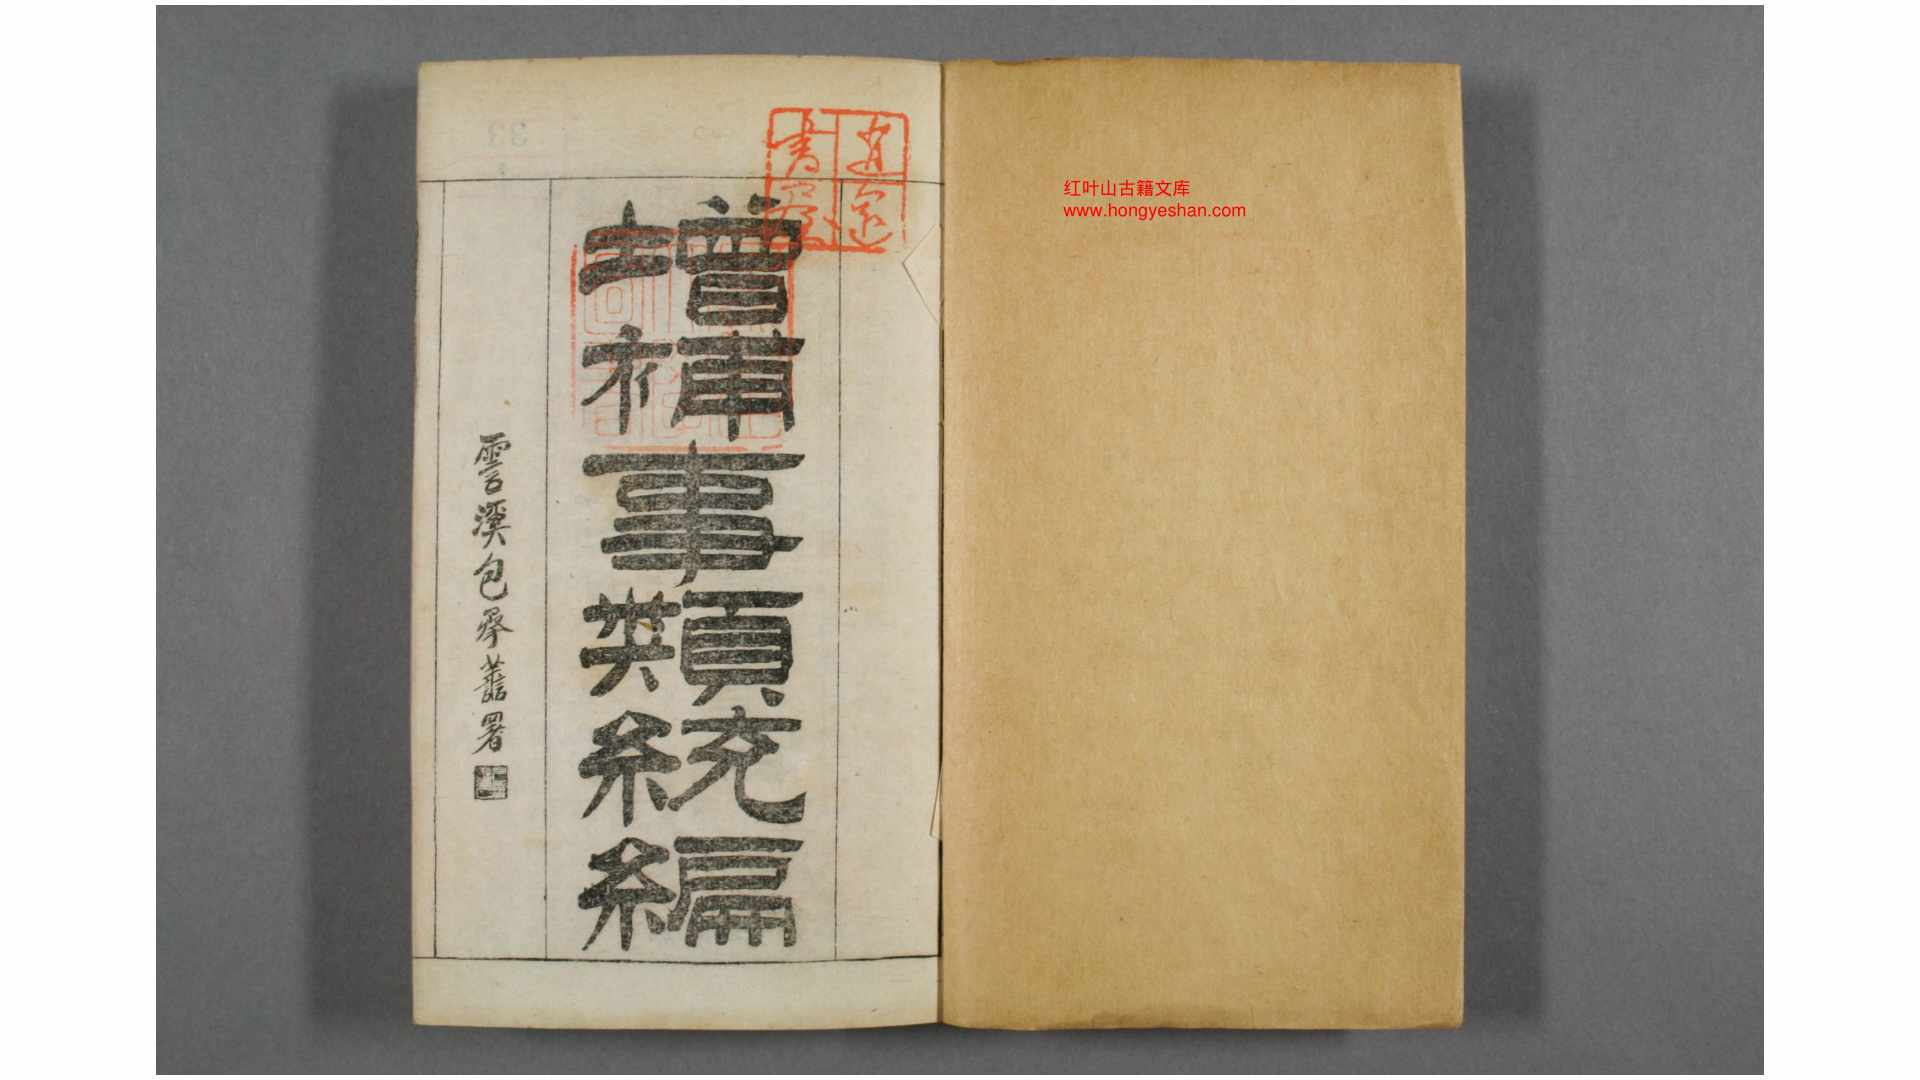 红叶山古籍文库
www.hongyeshan.com
增補事類統編
雲溪包承善署